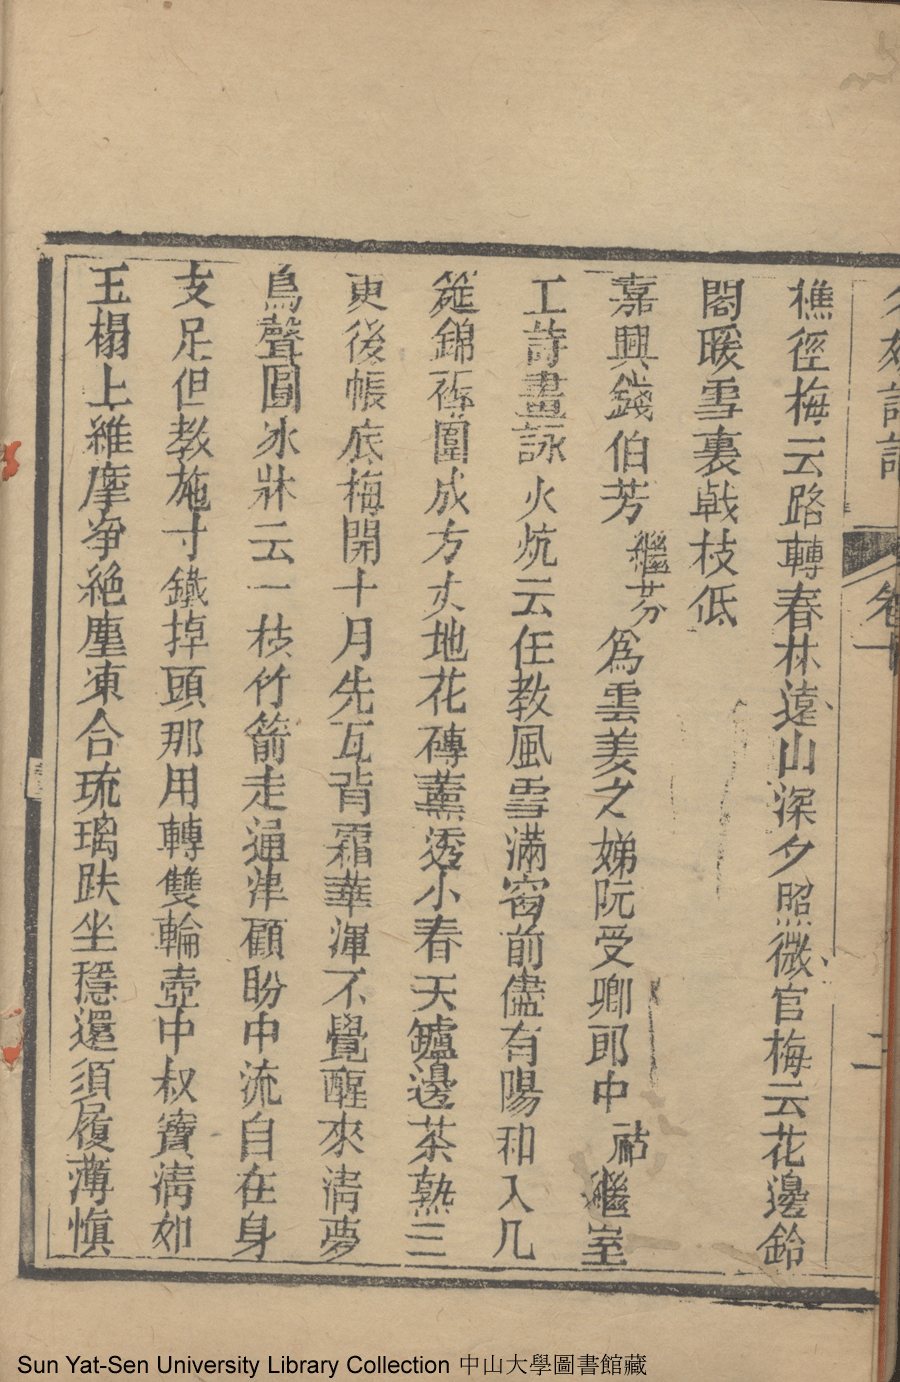 樵徑梅云路轉春林遠山深夕照微官梅云花邊鈴
閣暖雪裏戟枝低
嘉興錢伯芳繼芬為雲羙之娣阮受卿郎中祜繼室
工詩畫詠火炕云任教風雪滿窗前儘有陽和入几
筵錦褥圍成方丈地花磚薰透小春天鑪邊茶熟三
更後帳底梅開十月先瓦背霜華渾不覺醒來清夢
鳥聲圓冰牀云一枝竹箭走通津顧盼中流自在身
支足但教施寸鐵掉頭那用轉雙輪壺中叔寶清如
玉榻上維摩爭絕塵凍合琉璃趺坐穩還須履薄慎
卷十
二
Sun Yat-Sen University Library Collection 中山大學圖書館藏